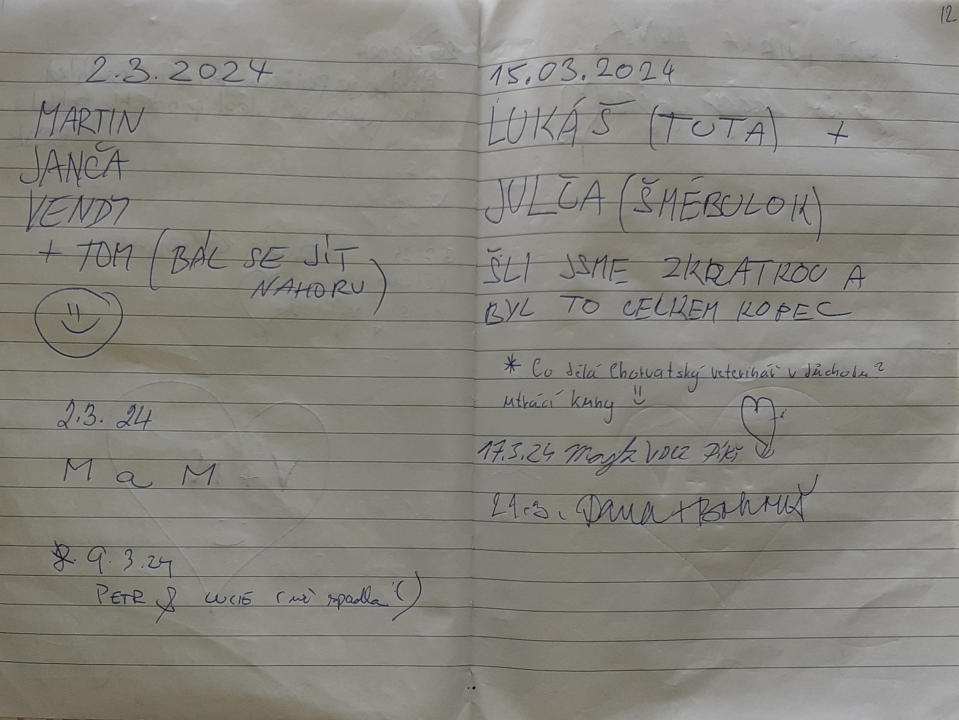 2.3.2024
MARTIN
JANČA
VENDY
+ TOM (BÁL SE JÍT
NAHORU)
2.3. 24
M a M
9. 3.24
PETR & LUCIE (mi spadla)
12
15.03.2024
LUKÁŠ (TUTA) +
JULČA (ŠMÉBULOK)
ŠLI JSME ZKRATKOU A
BYL TO CELKEM KOPEC
* Co dělá Chorvatský veterinář v důchodu?
utrácí kuny
17.3.24
21.3. Dana + Bohouš